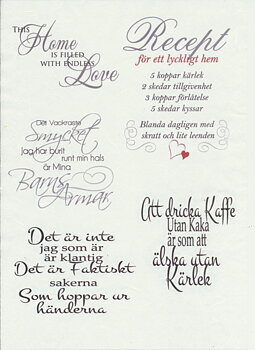 THIS
Home
IS FILLED
WITH ENDLESS
Love
Recept
för ett lyckligt hem
5 koppar kärlek
2 skedar tillgivenhet
3 koppar förlåtelse
5 skedar kyssar
Blanda dagligen med
skratt och lite leenden
Det Vackraste
Smycket
jag har burit
runt min hals
är Mina
Barns
Armar
Att dricka Kaffe
Utan Kaka
är som att
älska utan
Kärlek
Det är inte
jag som är
är klantig
Det är Faktiskt
sakerna
Som hoppar ur
händerna